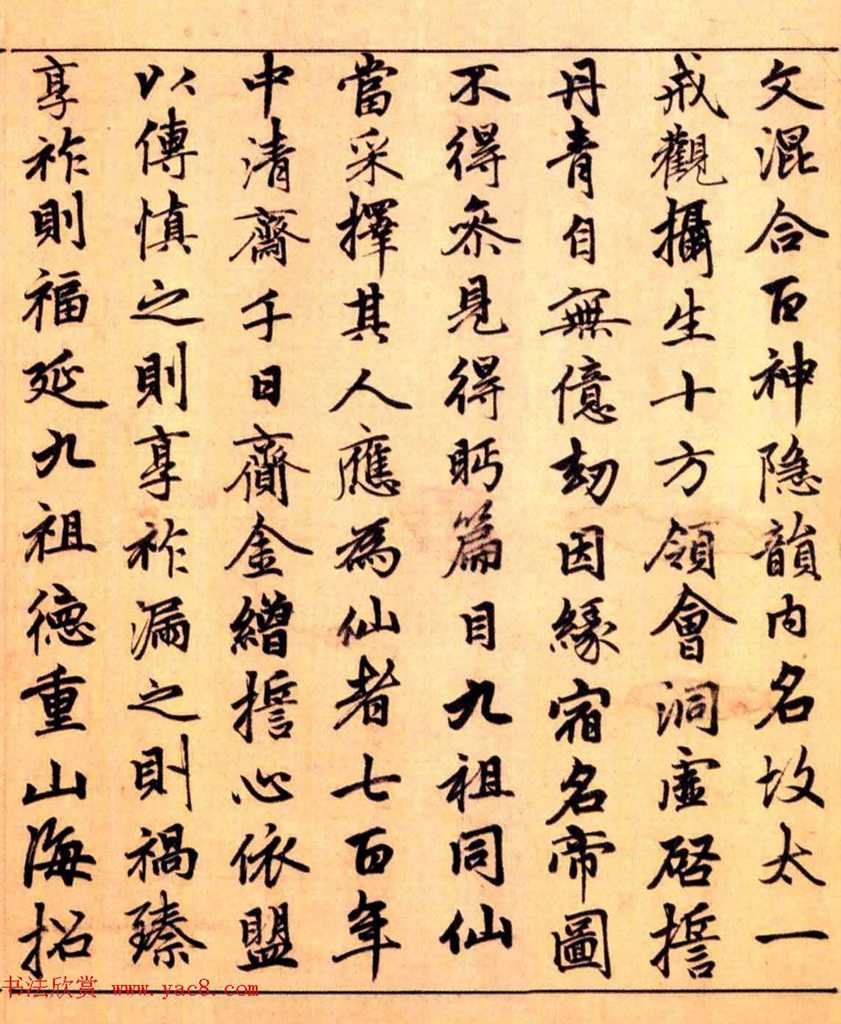 文混合百神隐韻内名㘩太一
戒觀攝生十方領會洞虛啓誓
丹青自無億劫因緣宿名帝圖
不得叅見得眄篇目九祖同仙
當采擇其人應為仙者七百年
中清齋千日齎金繒誓心依盟
以傳慎之則享祚漏之則禍臻
享祚則福延九祖德重山海招
书法欣赏 www.yac8.com